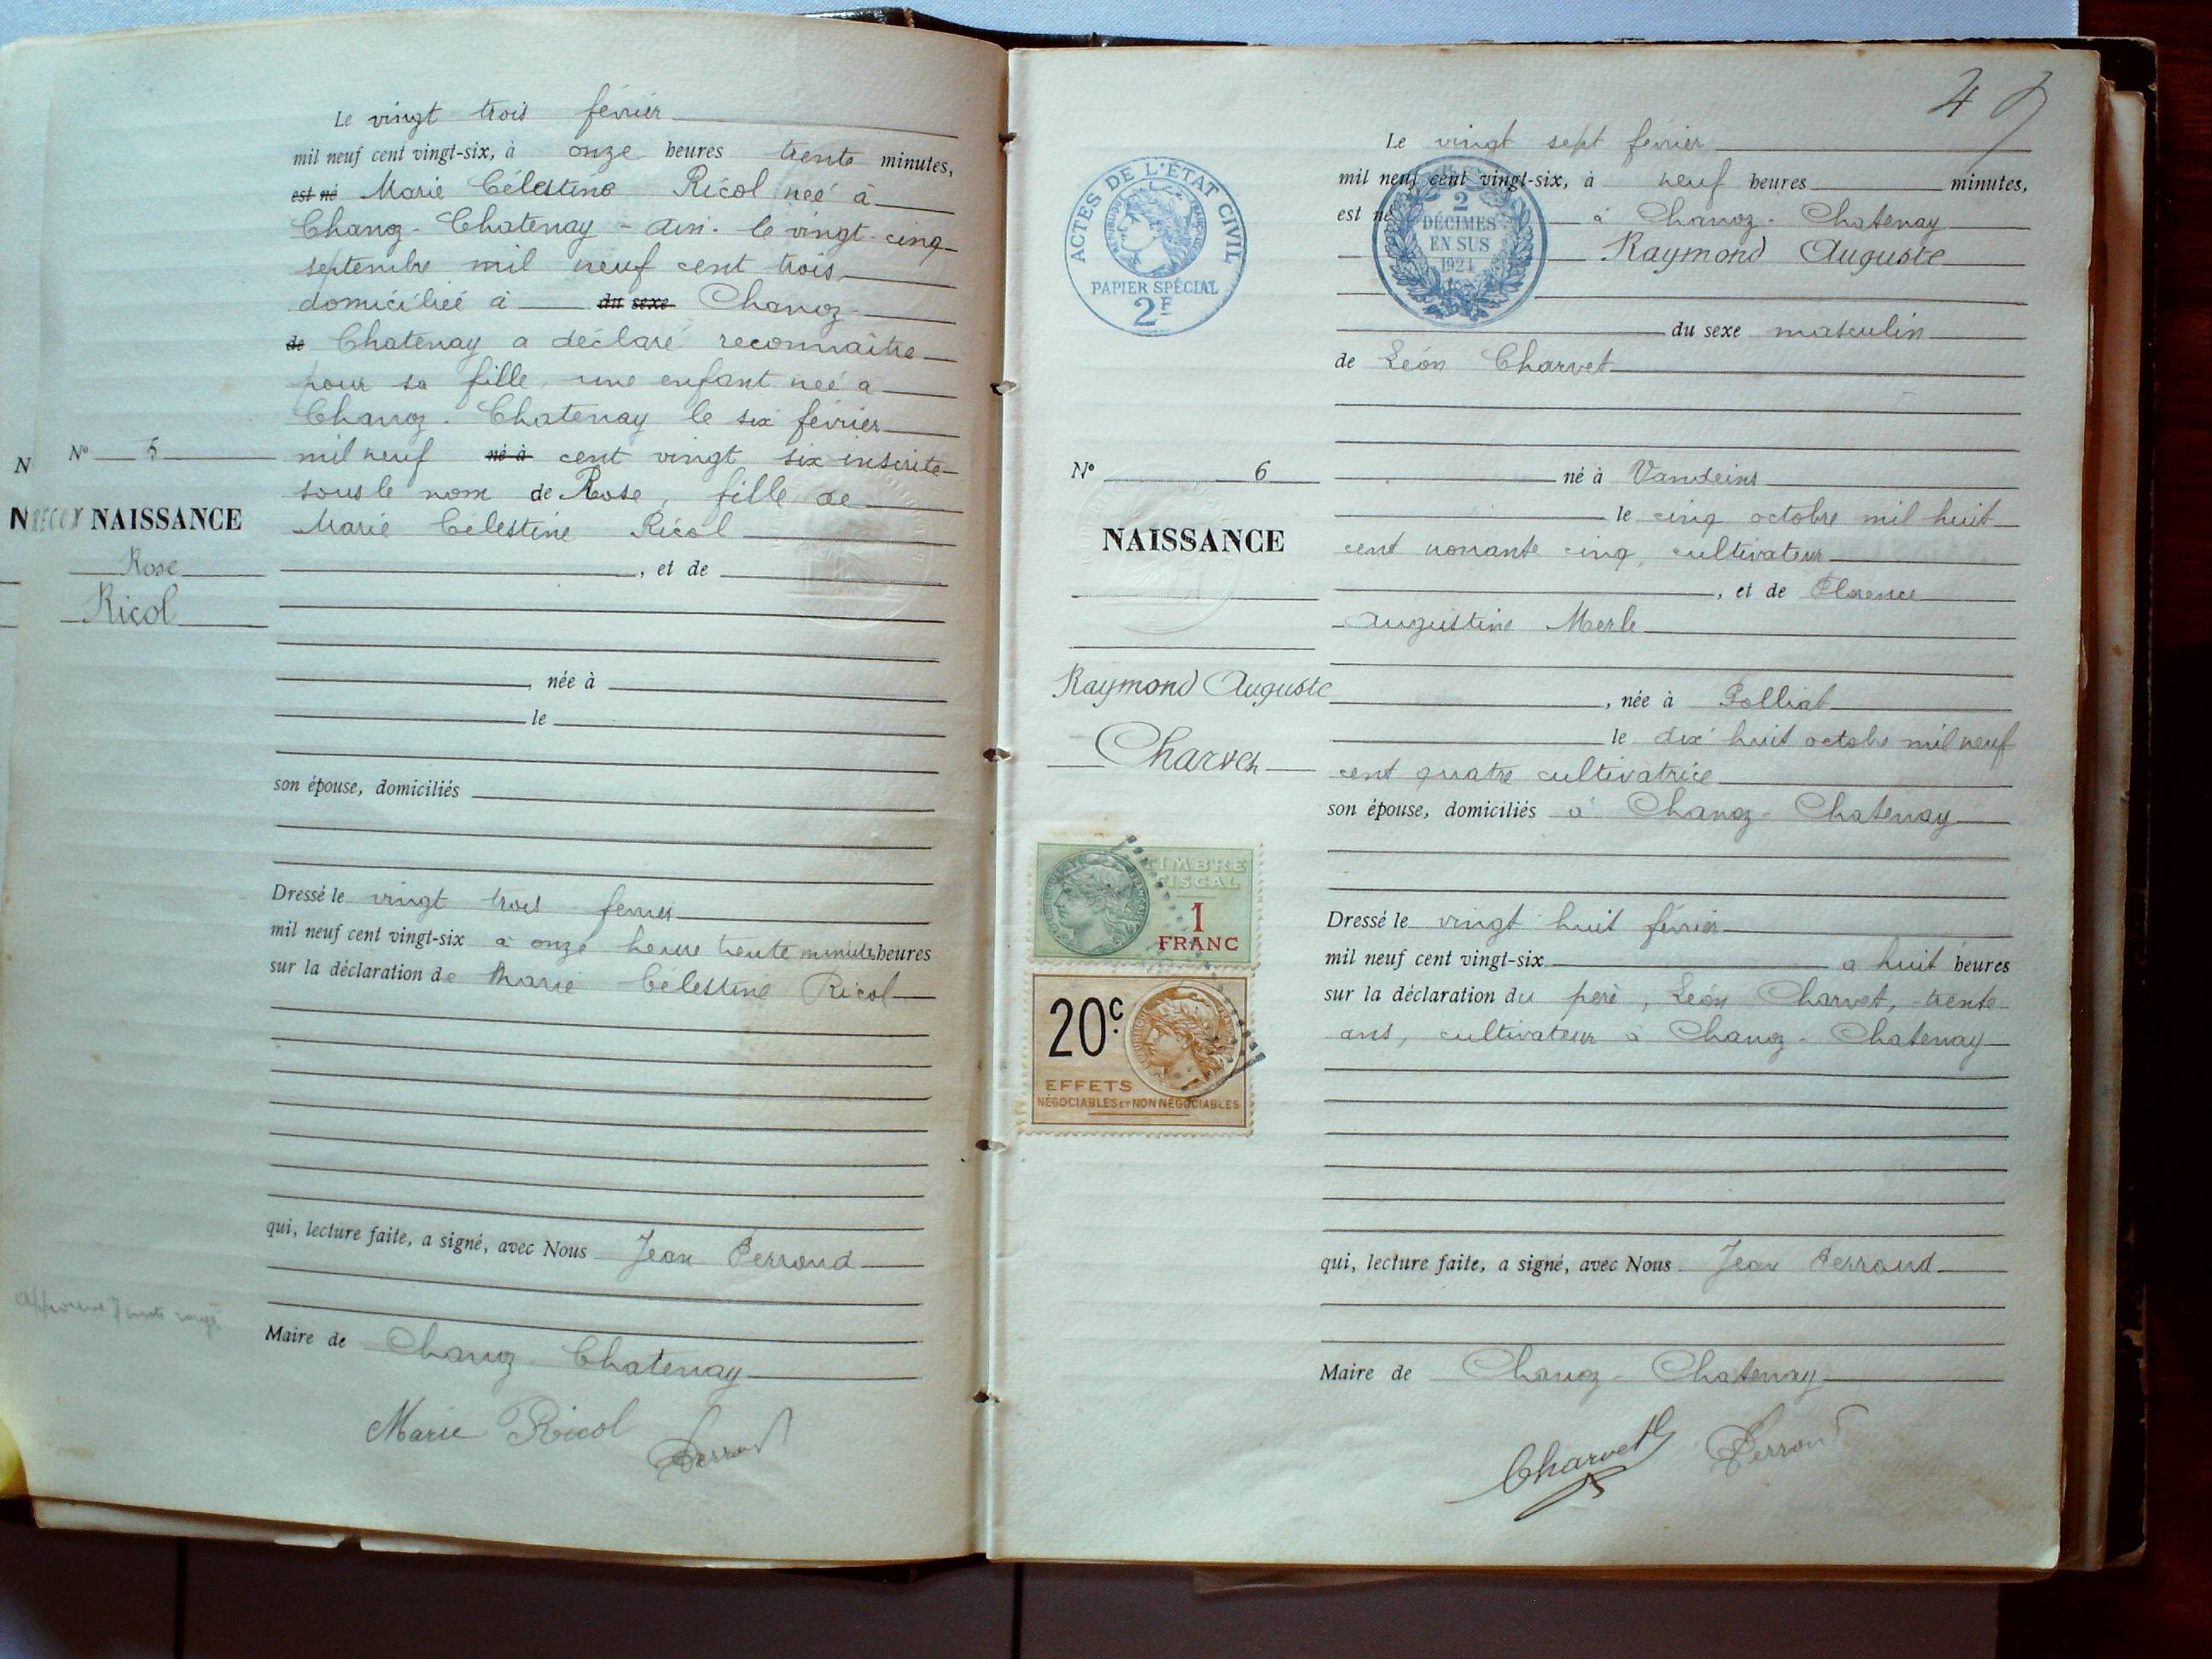 Le vingt trois février
mil neuf cent vingt-six, à onze heures trente minutes,
est né Marie Célestine Ricol neé à
Chanoz-Chatenay - Ain. le vingt-cinq
septembre mil neuf cent trois
domiciliée à du sexe Chanoz-
de Chatenay a déclaré reconnaître
pour sa fille, une enfant neé a
Chanoz-Chatenay le six février
mil neuf né à cent vingt six inscrite
sous le nom de Rose, fille de
Marie Célestine Ricol
, et de
née à
le
son épouse, domiciliés
Dressé le vingt trois fevrier
mil neuf cent vingt-six à onze heure trente minutes heures
sur la déclaration de Marie Célestine Ricol
qui, lecture faite, a signé, avec Nous Jean Perroud
Maire de Chanoz-Chatenay
Marie Ricol Perroud
N
N
Nº 5
RECON NAISSANCE
Rose
Ricol
47
ACTES DE L'ÉTAT CIVIL
PAPIER SPÉCIAL
2F
2
DÉCIMES
EN SUS
1924
Le vingt sept février
mil neuf cent vingt-six, à neuf heures minutes,
est né à Chanoz-Chatenay
Raymond Auguste
du sexe masculin
de Léon Charvet
né à Vandeins
le cinq octobre mil huit
cent nonante cinq, cultivateur
, et de Florence
Augustine Merle
, née à Polliat
le dix huit octobre mil neuf
cent quatre cultivatrice
son épouse, domiciliés à Chanoz-Chatenay
Dressé le vingt huit février
mil neuf cent vingt-six a huit heures
sur la déclaration du père, Léon Charvet, trente
ans, cultivateur à Chanoz-Chatenay
qui, lecture faite, a signé, avec Nous Jean Perroud
Maire de Chanoz-Chatenay
Charvet L Perroud
Nº 6
NAISSANCE
Raymond Auguste
Charvet
TIMBRE
FISCAL
1
FRANC
20c
EFFETS
NÉGOCIABLES ET NON NÉGOCIABLES